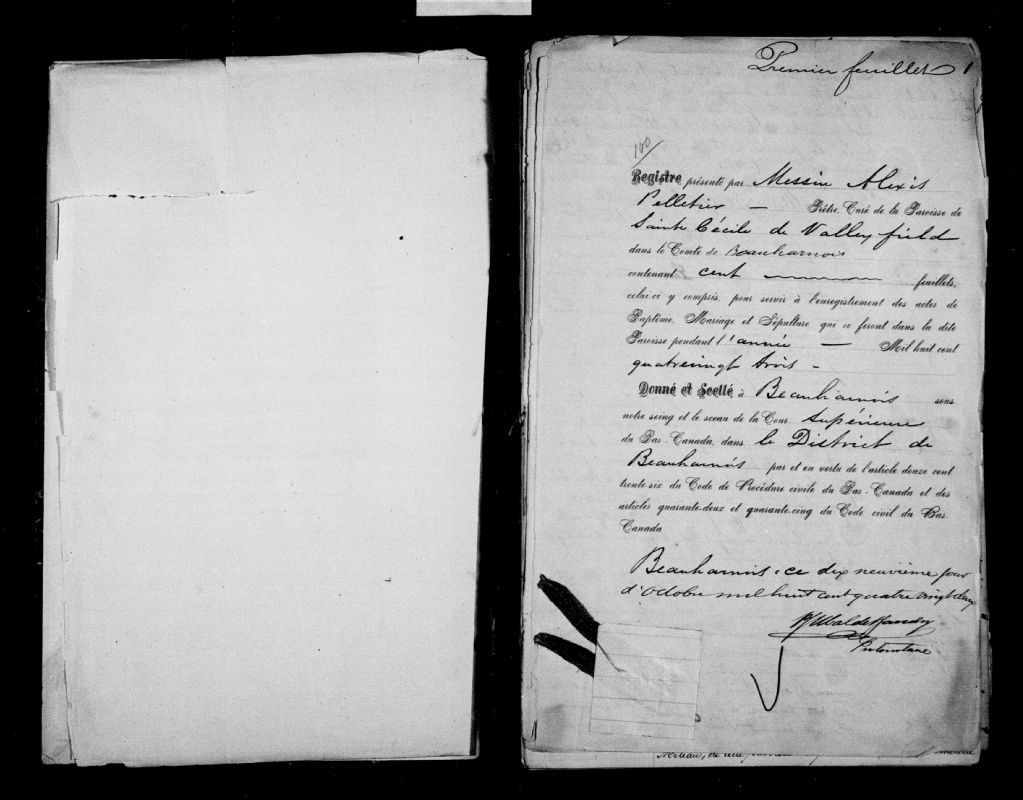 Premier feuillet 1
100/
Registre présenté par Messire Alexis
Pelletier — Prêtre, Curé de la Paroisse de
Sainte Cécile de Valleyfield
dans le Comté de Beauharnois
contenant cent feuillets,
celui-ci y compris, pour servir à l'enregistrement des actes de
Baptême, Mariage et Sépulture que se feront dans la dite
Paroisse pendant l'année — Mil huit cent
quatrevingt trois -
Donné et Scellé à Beauharnois sous
notre seing et le sceau de la Cour Supérieure
du Bas-Canada, dans le District de
Beauharnois par et en vertu de l'article douze cent
trente-six du Code de Procédure civile du Bas-Canada et des
articles quarante-deux et quarante-cinq du Code civil du Bas-
Canada
Beauharnois, ce dix neuvième jour
d'Octobre mil huit cent quatre vingt deux
Protonotaire